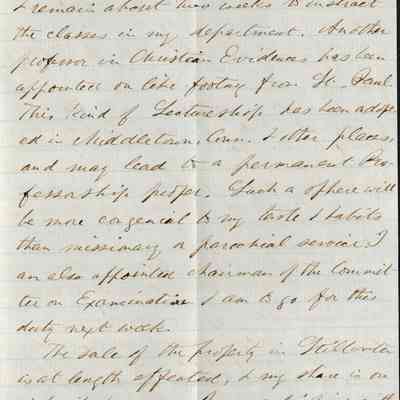 & remain about two weeks to instruct
the classes in my department. Another
professor in Christian Evidences has been
appointed on like footing from St. Paul.
This kind of Lectureship has been adopt-
ed in Middletown, Conn. & other places,
and may lead to a permanent Pro-
fessorship proper. Such a sphere will
be more congenial to my taste & habits
than missionary or parochial service. I
am also appointed chairman of the Commit-
tee on Examination & am to go for this
duty next week.
The sale of the property in Stillwater
is at length effected, & my share is on